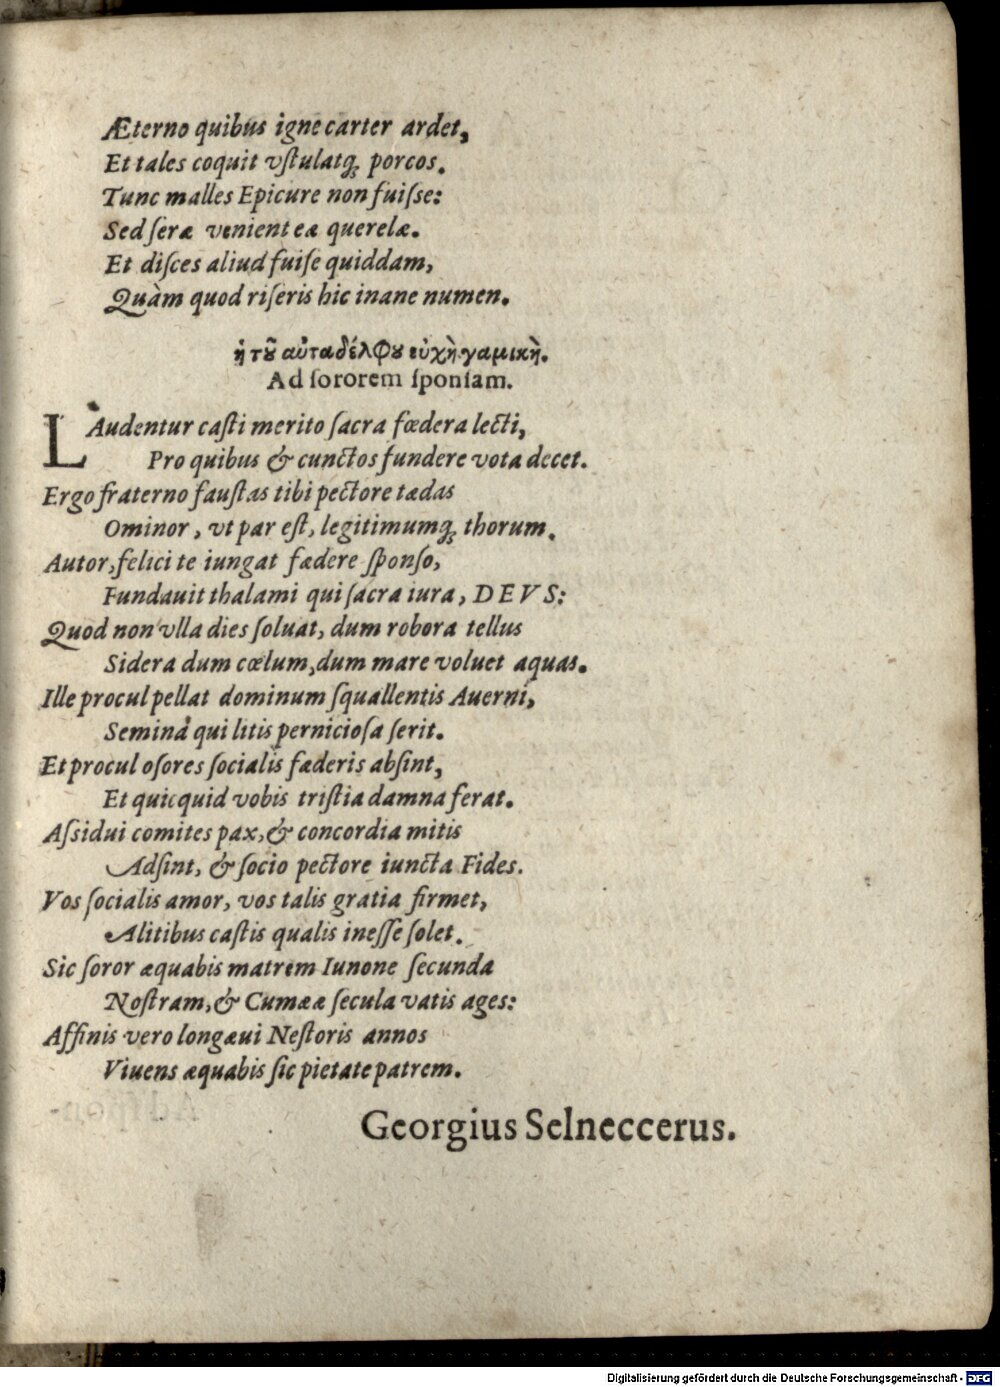 Æterno quibus igne carter ardet,
Et tales coquit vſtulatq; porcos.
Tunc malles Epicure non fuiſse:
Sed ſeræ venient eæ querelæ.
Et diſces aliud fuiſe quiddam,
Quàm quod riſeris hic inane numen.
ἡ τȣ͂ αὐταδέλφȣ εὐχὴ γαμικὴ.
Ad ſororem ſponſam.
LAudentur caſti merito ſacra fœdera lecti,
Pro quibus & cunctos fundere vota decet.
Ergo fraterno fauſtas tibi pectore tædas
Ominor, vt par eſt, legitimumq; thorum.
Autor, felici te iungat fædere ſponſo,
Fundauit thalami qui ſacra iura, DEVS:
Quod non vlla dies ſoluat, dum robora tellus
Sidera dum cœlum, dum mare voluet aquas.
Ille procul pellat dominum ſquallentis Auerni,
Seminà qui litis pernicioſa ſerit.
Et procul oſores ſocialis fæderis abſint,
Et quicquid vobis triſtia damna ferat.
Aſsidui comites pax, & concordia mitis
Adſint, & ſocio pectore iuncta Fides.
Vos ſocialis amor, vos talis gratia firmet,
Alitibus caſtis qualis ineſſe ſolet.
Sic ſoror æquabis matrem Iunone ſecunda
Noſtram, & Cumææ ſecula vatis ages:
Affinis vero longæui Neſtoris annos
Viuens æquabis ſic pietate patrem.
Georgius Selneccerus.
Digitalisierung gefördert durch die Deutsche Forschungsgemeinschaft - DFG